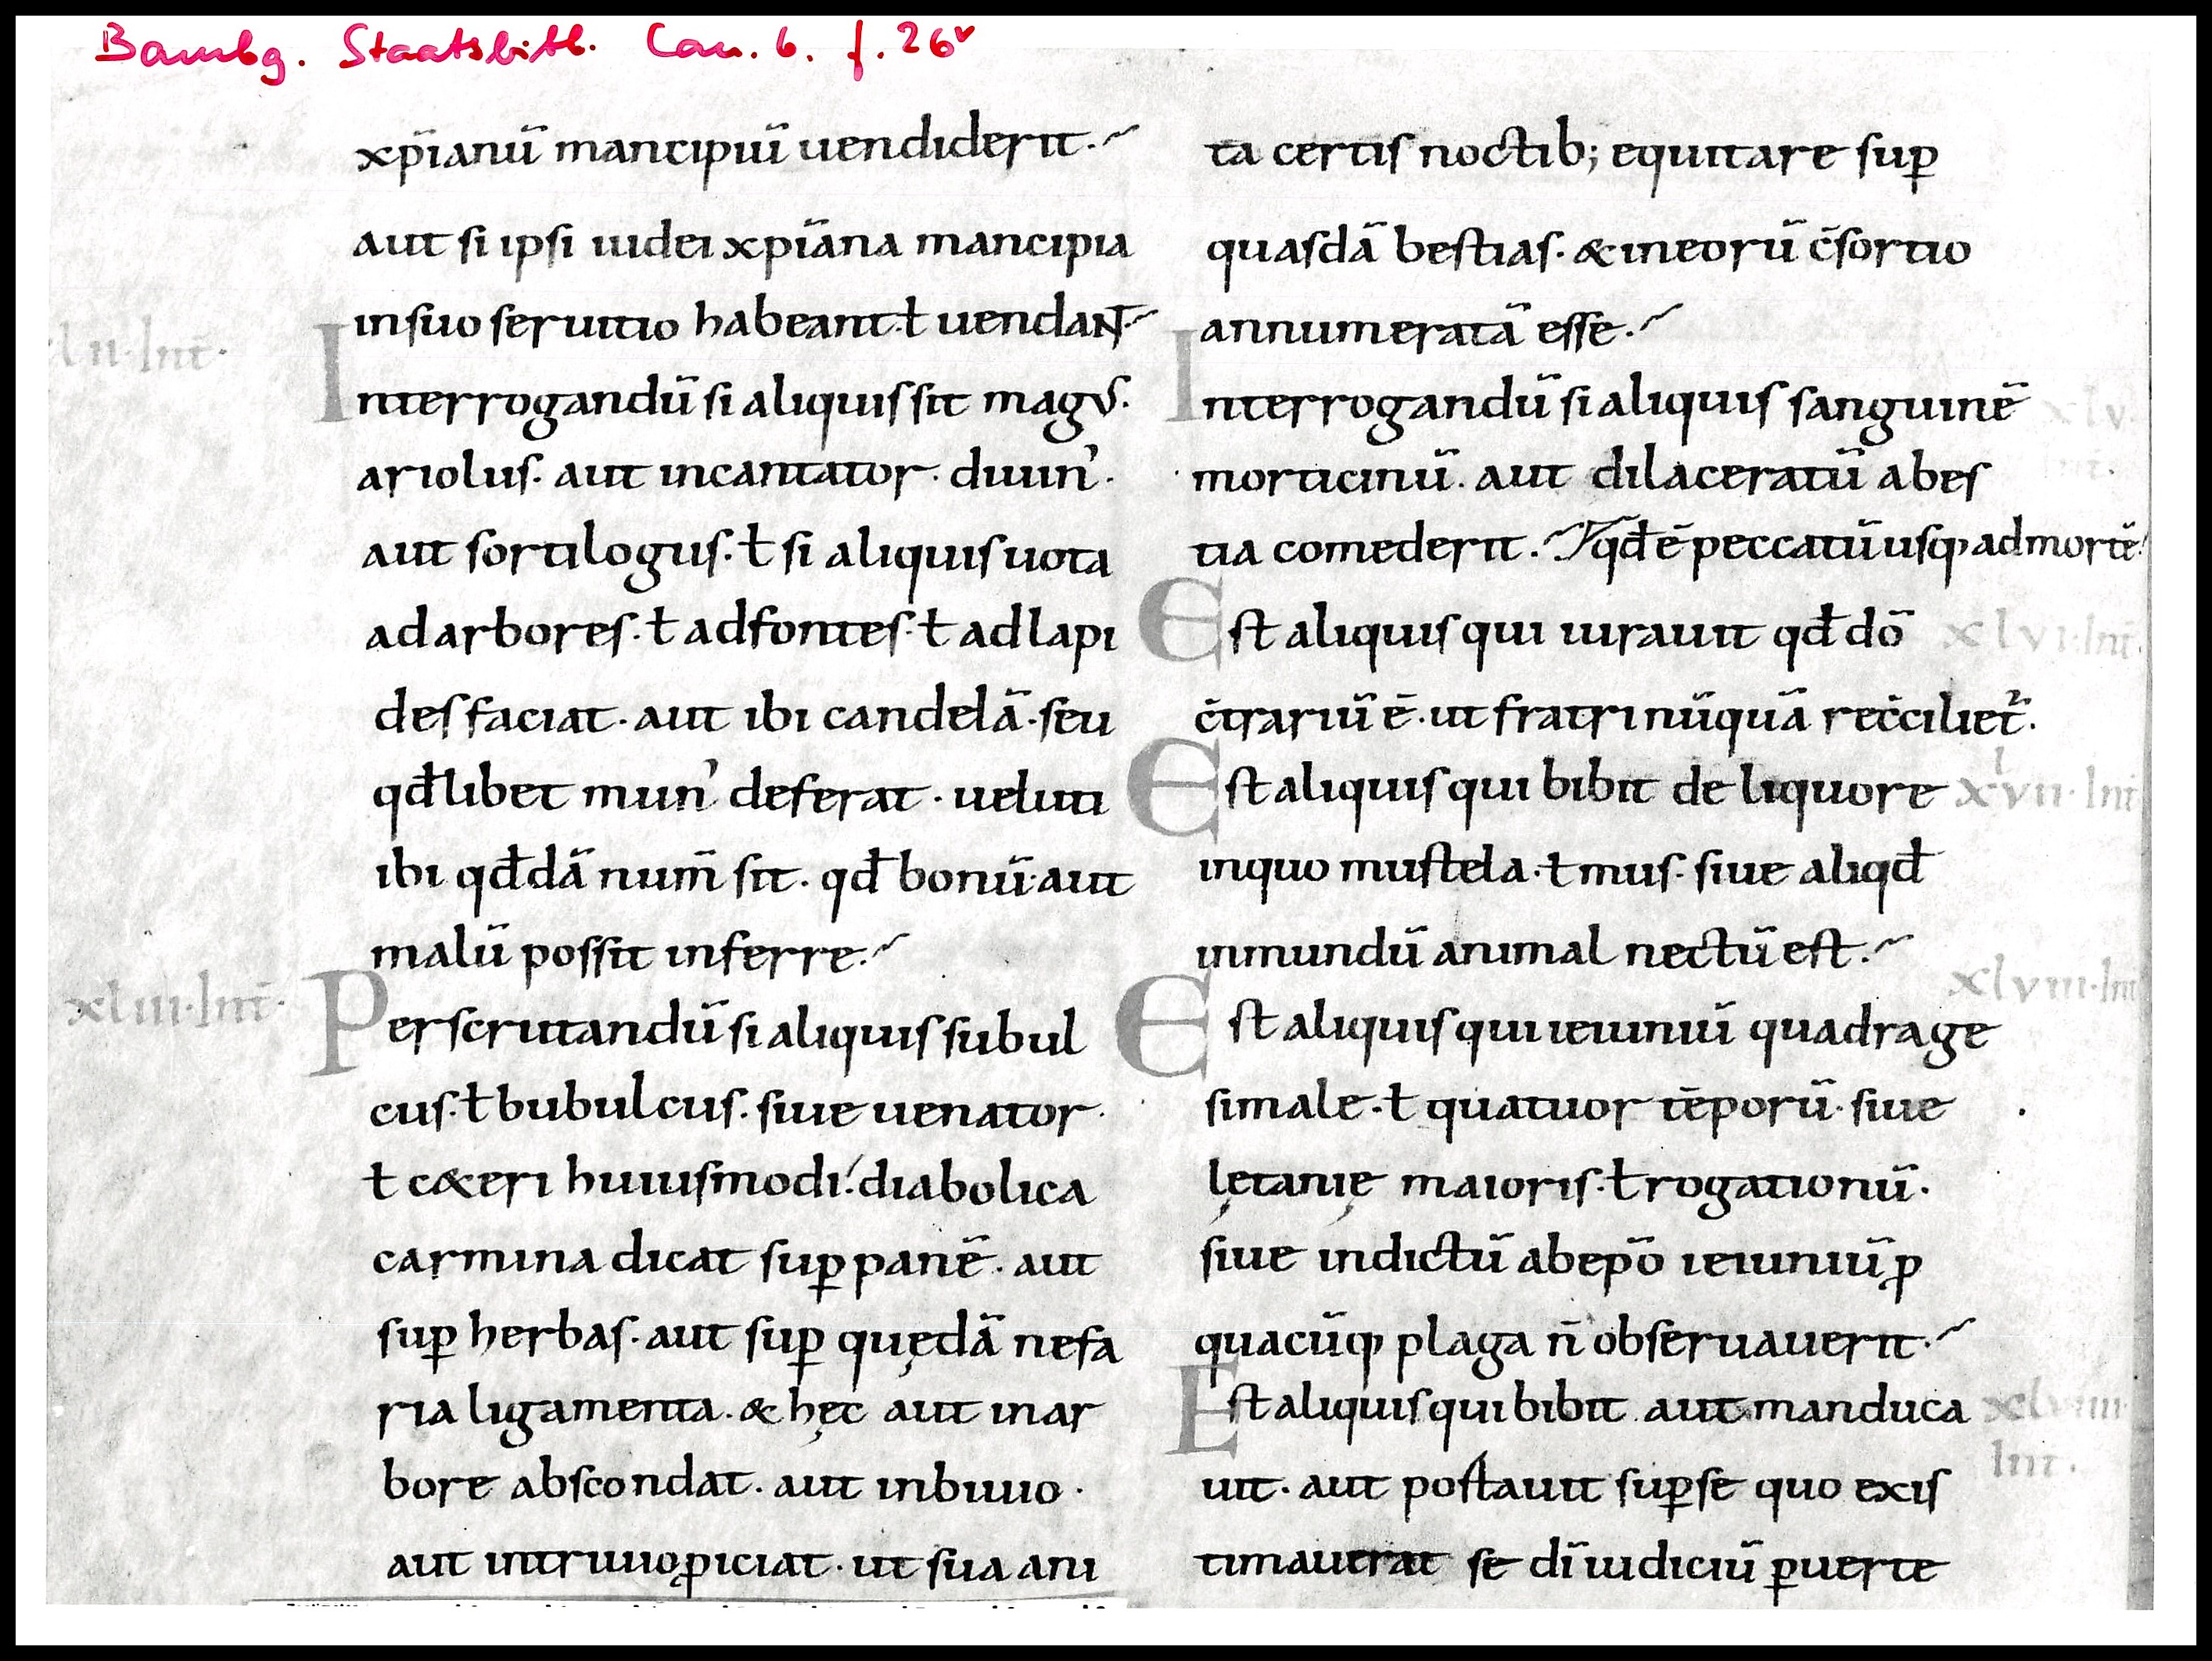 Bambg. Staatsbibl. Can. 6. f. 26v
xp̄ianū mancipiū uendiderit.
aut si ipsi iudei xp̄iana mancipia
insuo seruitio habeant. ł uendant.
lii·Int̄·
Interrogandū si aliquis sit magus.
ariolus. aut incantator. diuin'.
aut sortilogus. ł si aliquis uota
ad arbores. ł ad fontes. ł ad lapi
des faciat. aut ibi candelā. seu
qđlibet mun' deferat. ueluti
ibi qđdā num̄ sit. qđ bonū. aut
malū possit inferre.
xliii·Int̄·
Perscrutandū si aliquis subul
cus. ł bubulcus. siue uenator.
ł c&eri huiusmodi. diabolica
carmina dicat suꝑ panē. aut
suꝑ herbas. aut suꝑ quędā nefa
ria ligamenta. & hęc aut in ar
bore abscondat. aut in biuio.
aut in triuio ꝓiciat. ut sua ani
ta certis noctib; equitare suꝑ
quasdā bestias. & in eorū c̄sortio
annumeratā esse.
Interrogandū si aliquis sanguinē
xlv
int.
morticinū. aut dilaceratū a bes
tia comederit. qđ ē peccatū usq; ad mortē.
Est aliquis qui iurauit qđ dō
xlvi·Int̄·
c̄trariū ē. ut fratri nūquā rec̄cilietur.
Est aliquis qui bibit de liquore
xlvii·Int
in quo mustela. ł mus. siue aliqđ
inmundū animal nectū est.
xlviii·Int
Est aliquis qui ieiuniū quadrage
simale. ł quatuor tēporū. siue
lętanię maioris. ł rogationū.
siue indictū ab ep̄o ieiuniū ꝓ
quacūq; plaga n̄ obseruauerit.
Est aliquis qui bibit aut manduca
xlviiii
Int.
uit. aut postauit suꝑ se quo exis
timauerat se dī iudiciū ꝑuerte